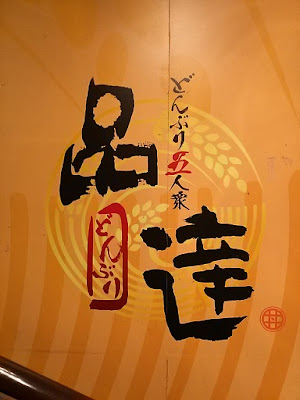 どんぶり五人衆
品達
どんぶり